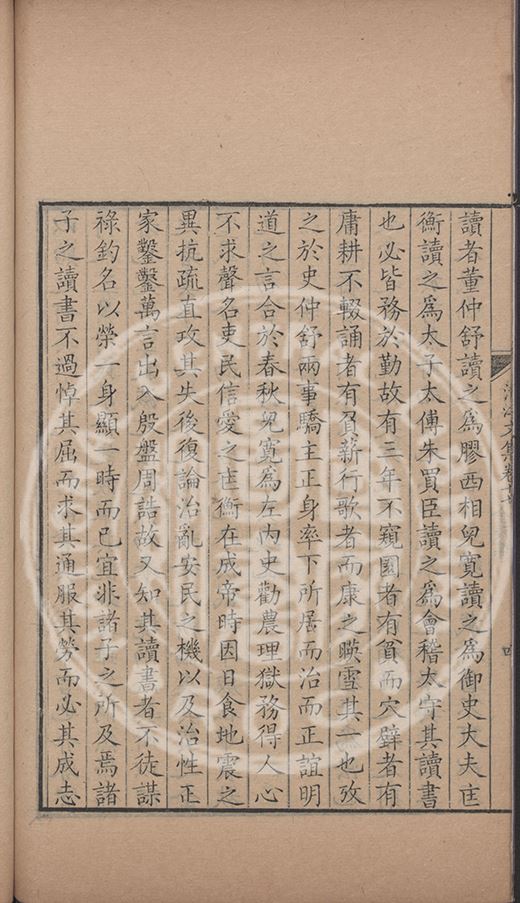 讀者董仲舒讀之爲膠西相兒寬讀之爲御史大夫匡
衡讀之爲太子太傅朱買臣讀之爲會稽太守其讀書
也必皆務於勤故有三年不窺園者有貧而穴壁者有
庸耕不輟誦者有負薪行歌者而康之暎雪其一也攷
之於史仲舒兩事驕主正身率下所居而治而正誼明
道之言合於春秋兒寬爲左內史勸農理獄務得人心
不求聲名吏民信愛之匡衡在成帝時因日食地震之
異抗疏直攻其失後復論治亂安民之機以及治性正
家鑿鑿萬言出入殷盤周誥故又知其讀書者不徒謀
祿釣名以榮一身顯一時而已宜非諸子之所及焉諸
子之讀書不過悼其屈而求其通服其勞而必其成志